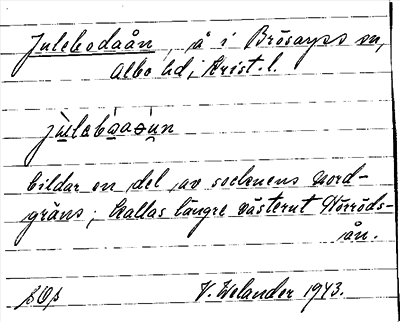 Julebodaån, å i Brösarps sn,
Albo hd, Krist. l.
jùlebo̱aǝún
bildar en del av socknens nord-
gräns; kallas längre västerut Hörröds-
ån.
V. Welander 1943.